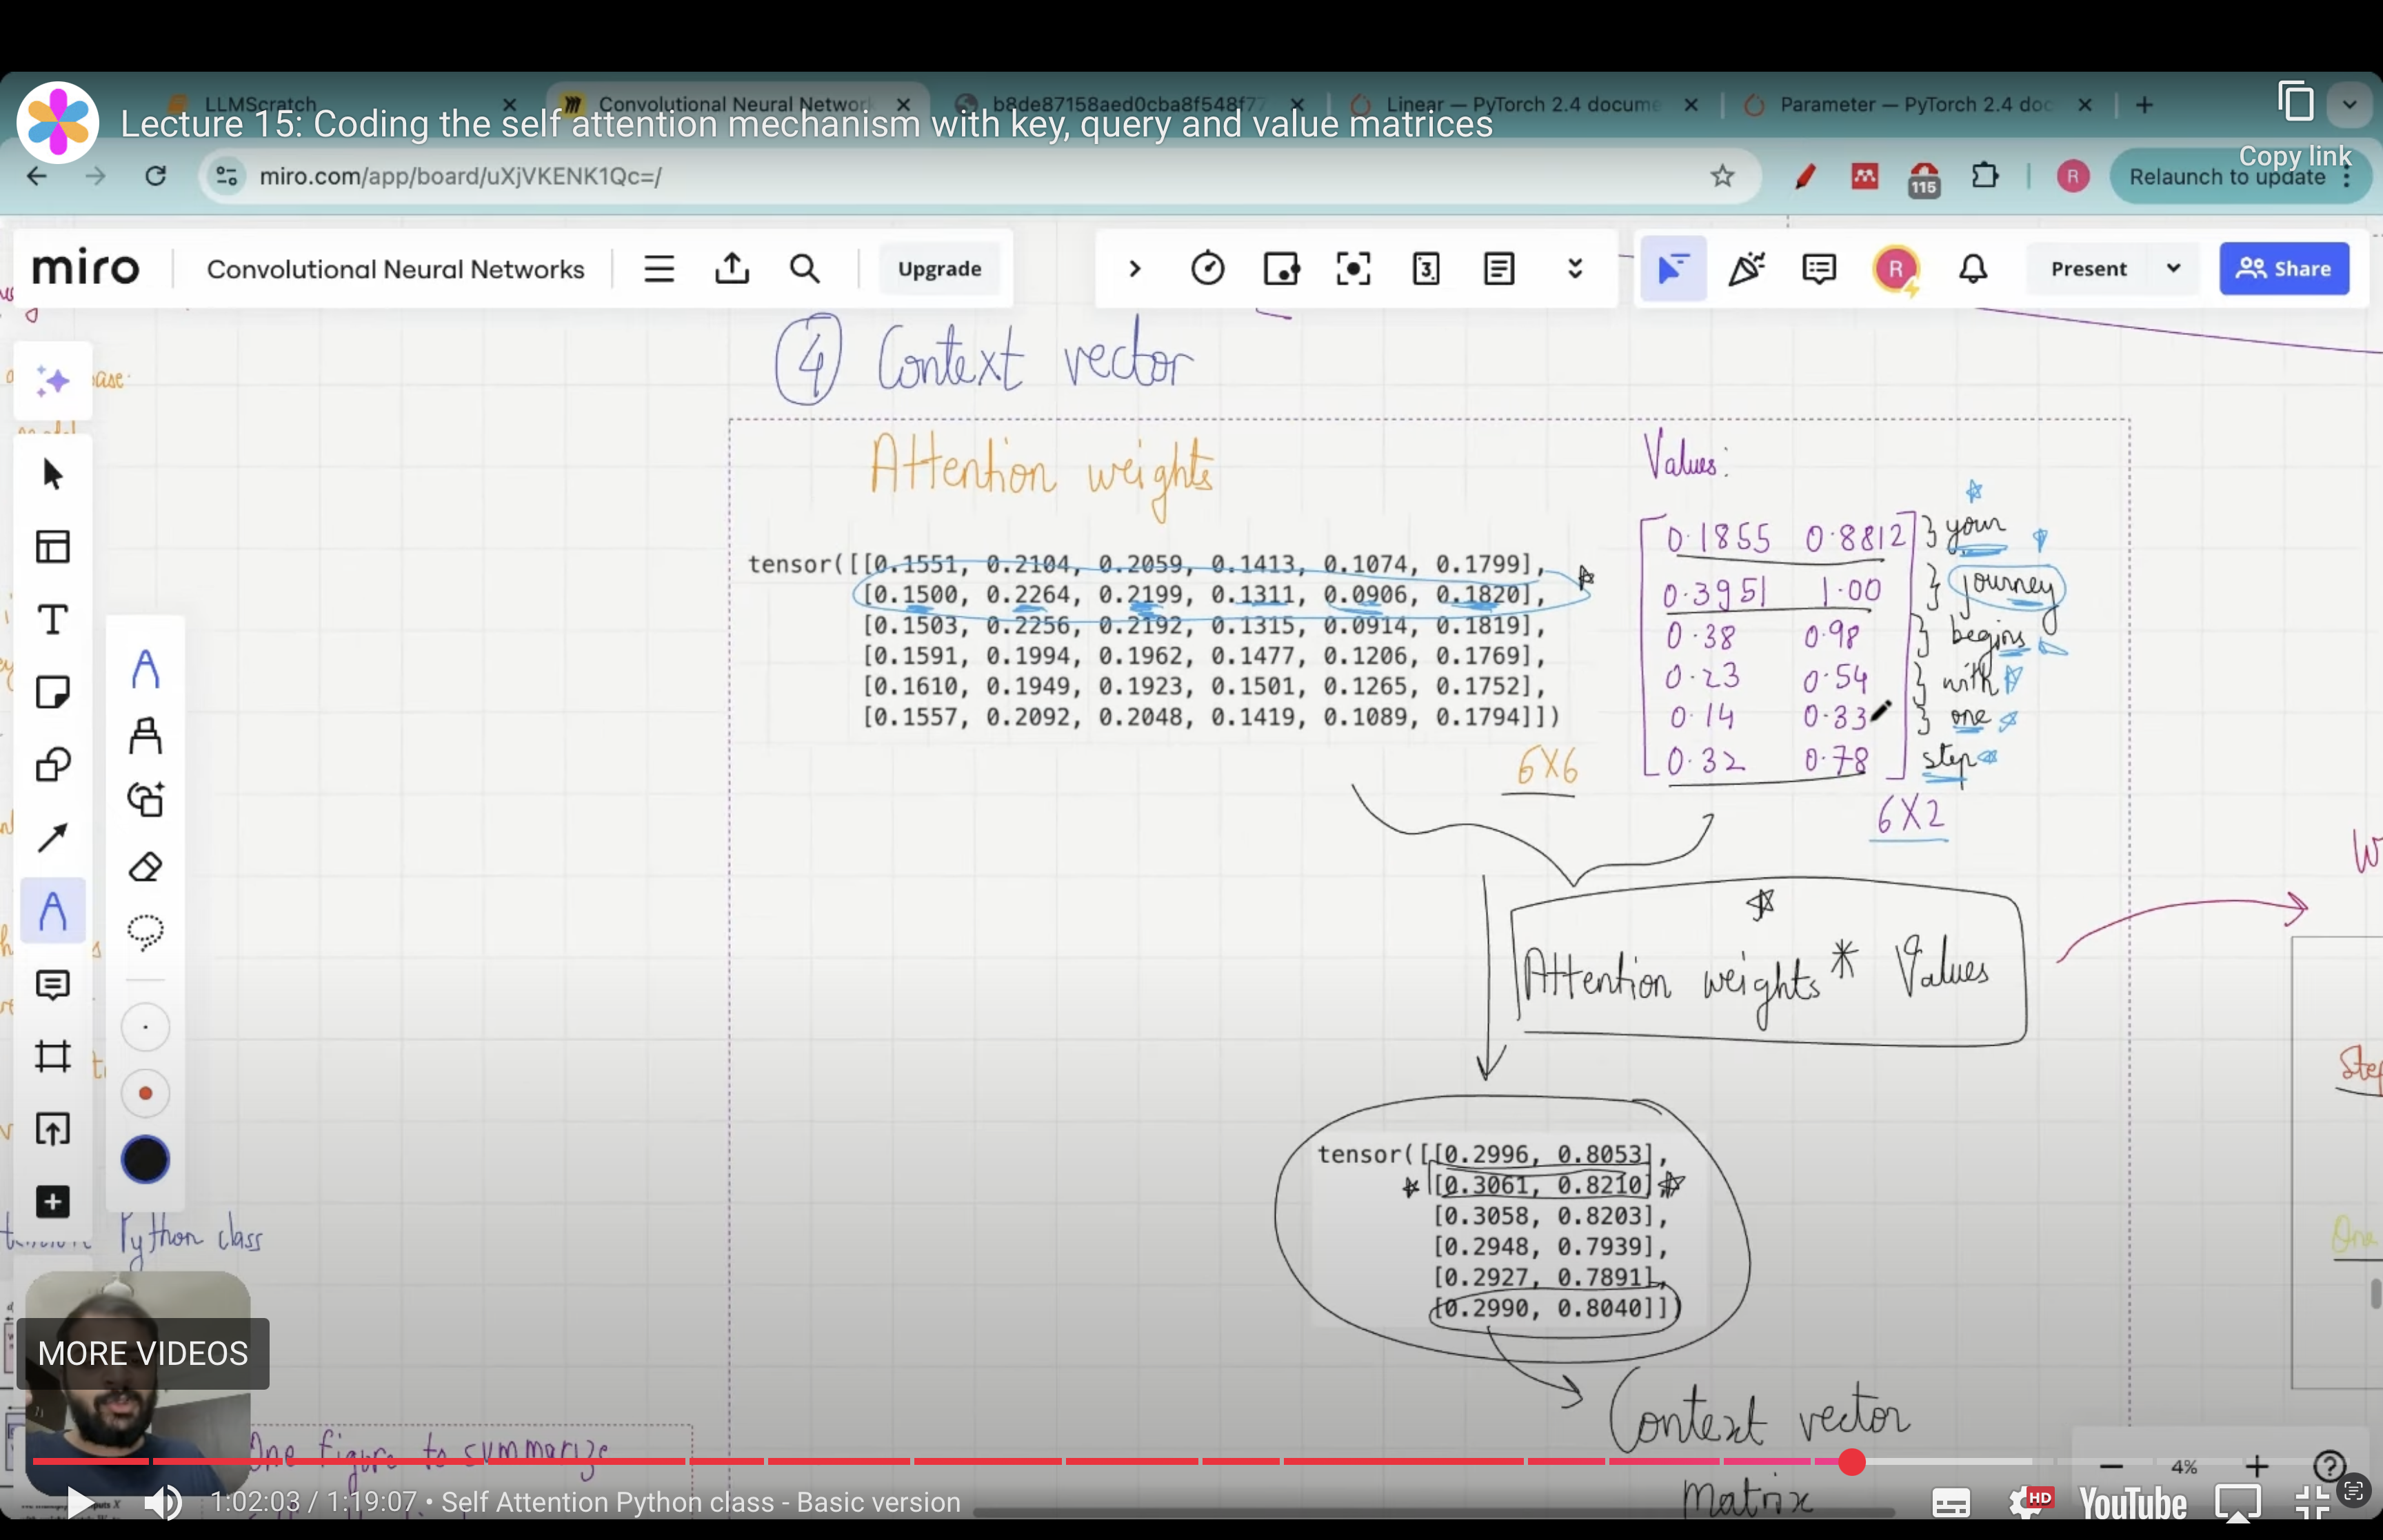 LLMScratch
Convolutional Neural Networ
b8de87158aed0cba8f548f77
Linear — PyTorch 2.4 docume
Parameter — PyTorch 2.4 doc
Lecture 15: Coding the self attention mechanism with key, query and value matrices
Copy link
miro.com/app/board/uXjVKENK1Qc=/
115
R
Relaunch to update
miro
Convolutional Neural Networks
Upgrade
3
R
Present
Share
4 Context vector
ase:
Attention weights
Values:
tensor([[0.1551, 0.2104, 0.2059, 0.1413, 0.1074, 0.1799],
[0.1500, 0.2264, 0.2199, 0.1311, 0.0906, 0.1820],
[0.1503, 0.2256, 0.2192, 0.1315, 0.0914, 0.1819],
[0.1591, 0.1994, 0.1962, 0.1477, 0.1206, 0.1769],
[0.1610, 0.1949, 0.1923, 0.1501, 0.1265, 0.1752],
[0.1557, 0.2092, 0.2048, 0.1419, 0.1089, 0.1794]])
6X6
0.1855 0.8812 } your
0.3951 1.00 } journey
0.38 0.98 } begins
0.23 0.54 } with
0.14 0.33 } one
0.32 0.78 step
6X2
Attention weights * Values
tensor([[0.2996, 0.8053],
[0.3061, 0.8210],
[0.3058, 0.8203],
[0.2948, 0.7939],
[0.2927, 0.7891],
[0.2990, 0.8040]])
Context vector
Matrix
Step
One
Python class
MORE VIDEOS
One figure to summarize
4%
1:02:03 / 1:19:07 • Self Attention Python class - Basic version
HD
YouTube